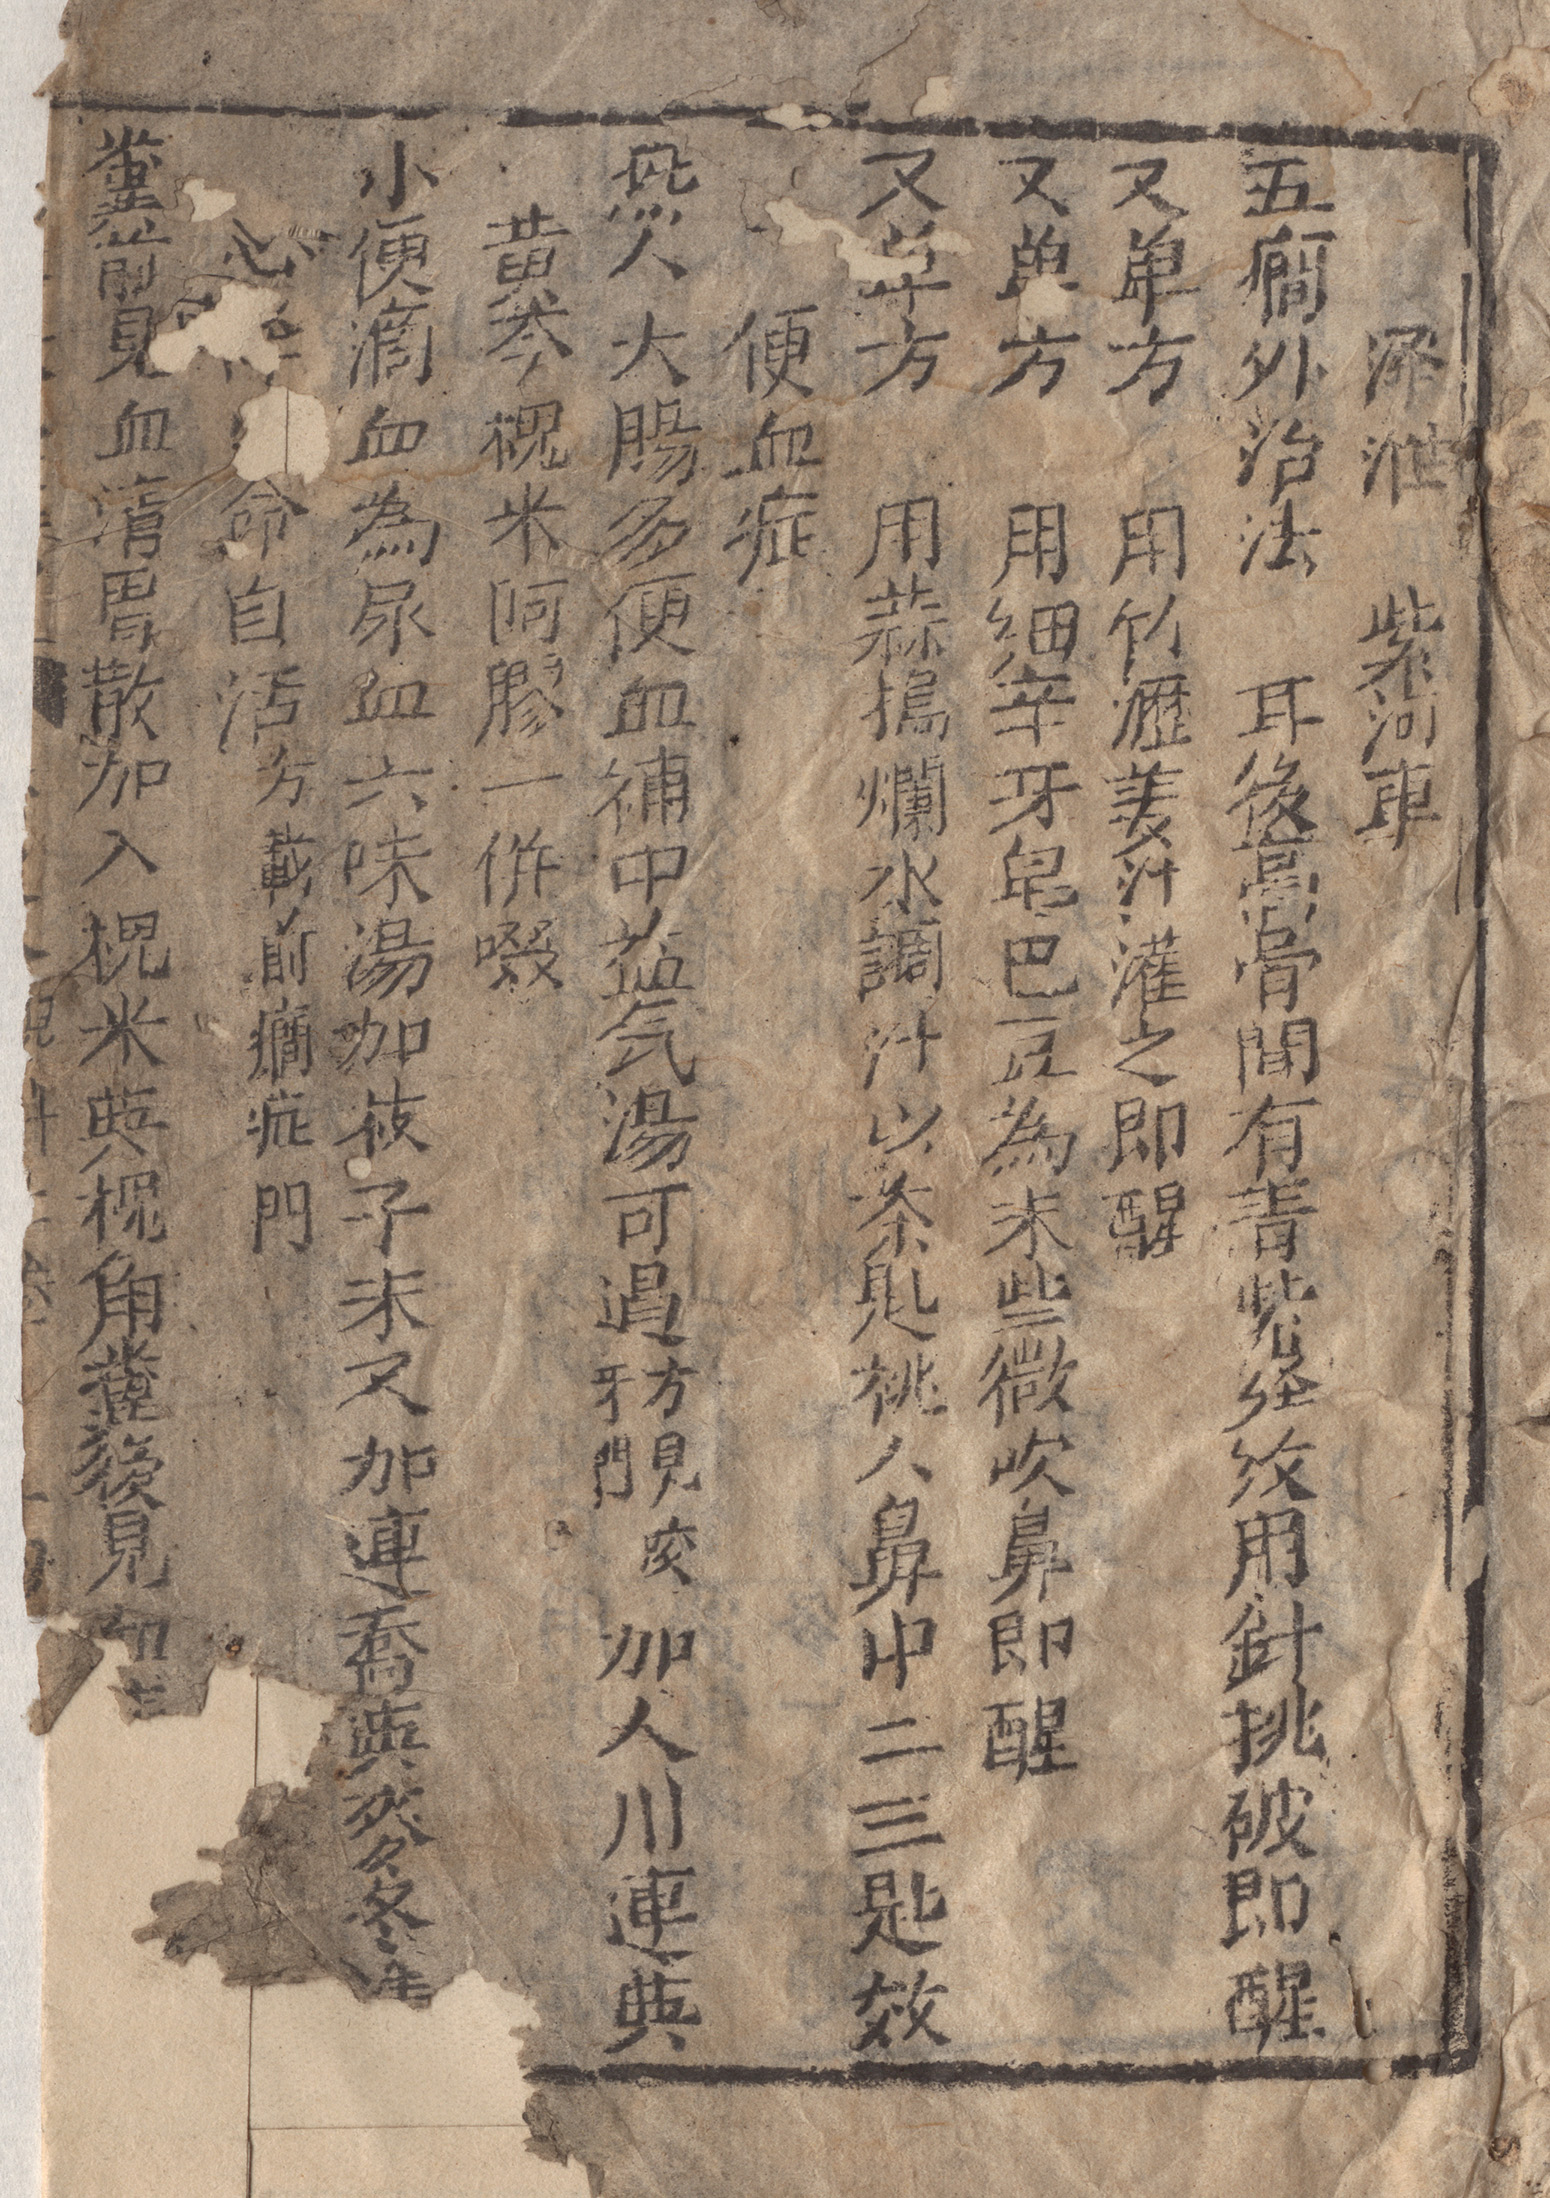 滛泄 紫河車
五癇外治法 耳後高骨間有青紫丝紋用針挑破即醒
又单方 用竹瀝姜汁灌之即醒
又单方 用細辛牙皂巴豆為末些微吹鼻即醒
又单方 用蒜搗爛水調汁以茶匙挑入鼻中二三匙效
便血症
人大腸多便血補中益気湯可過方見咳牙門加人川連與
黄芩槐米阿膠一併啜
小便滴血為尿血六味湯加枝子末又加連喬與麥冬
心命自活方載前癇症門
糞前見血清胃散加入槐米與槐角糞後見